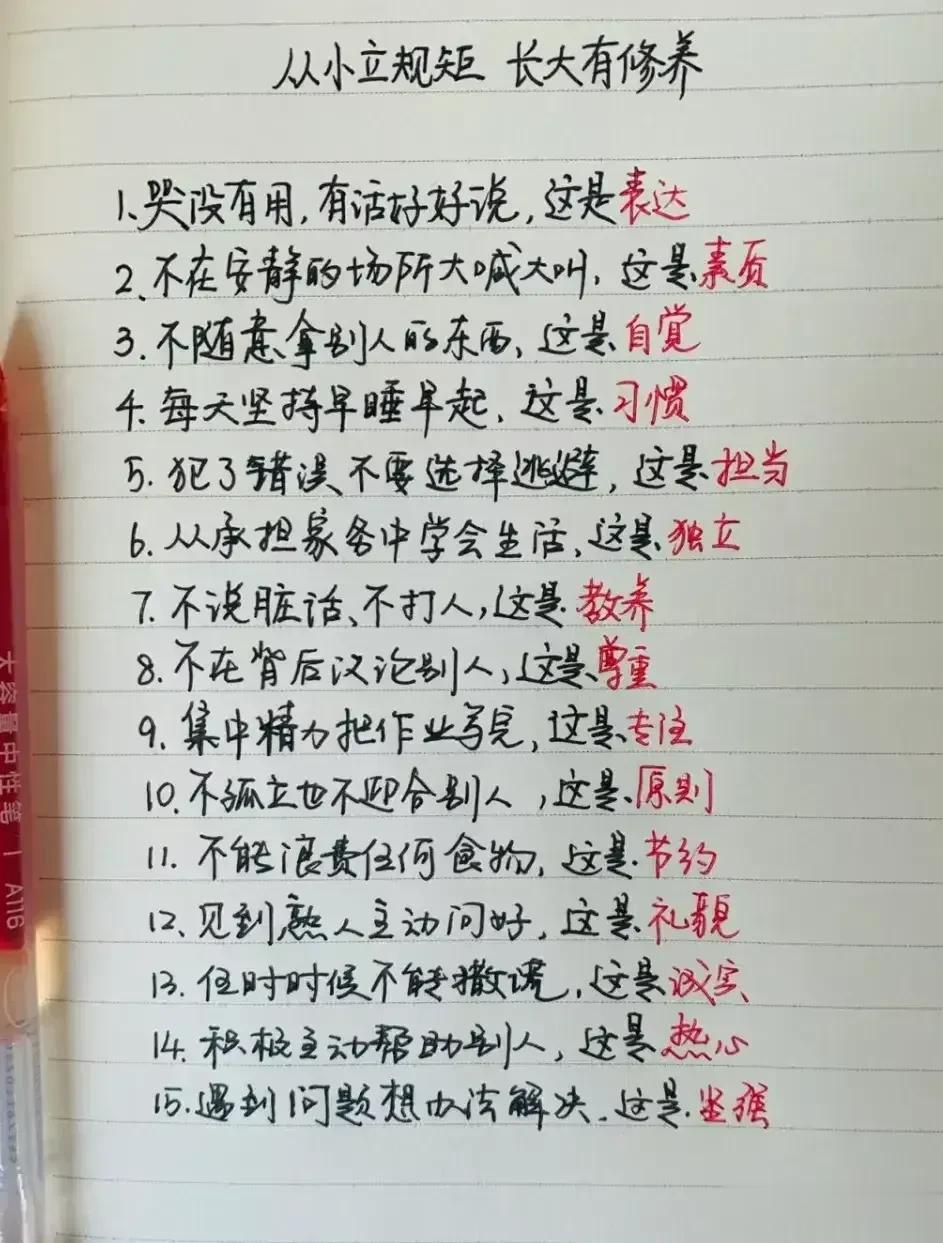 从小立规矩 长大有修养
1.哭没有用,有话好好说,这是表达
2.不在安静的场所大喊大叫,这是素质
3.不随意拿别人的东西,这是自觉
4.每天坚持早睡早起,这是习惯
5.犯了错误不要选择逃避,这是担当
6.从承担家务中学会生活,这是独立
7.不说脏话、不打人,这是教养
8.不在背后议论别人,这是尊重
9.集中精力把作业写完,这是专注
10.不孤立也不迎合别人,这是原则
11.不能浪费任何食物,这是节约
12.见到熟人主动问好,这是礼貌
13.任时时候不能撒谎,这是诚实
14.积极主动帮助别人,这是热心
15.遇到问题想办法解决.这是坚强
大容量中性笔 | A116